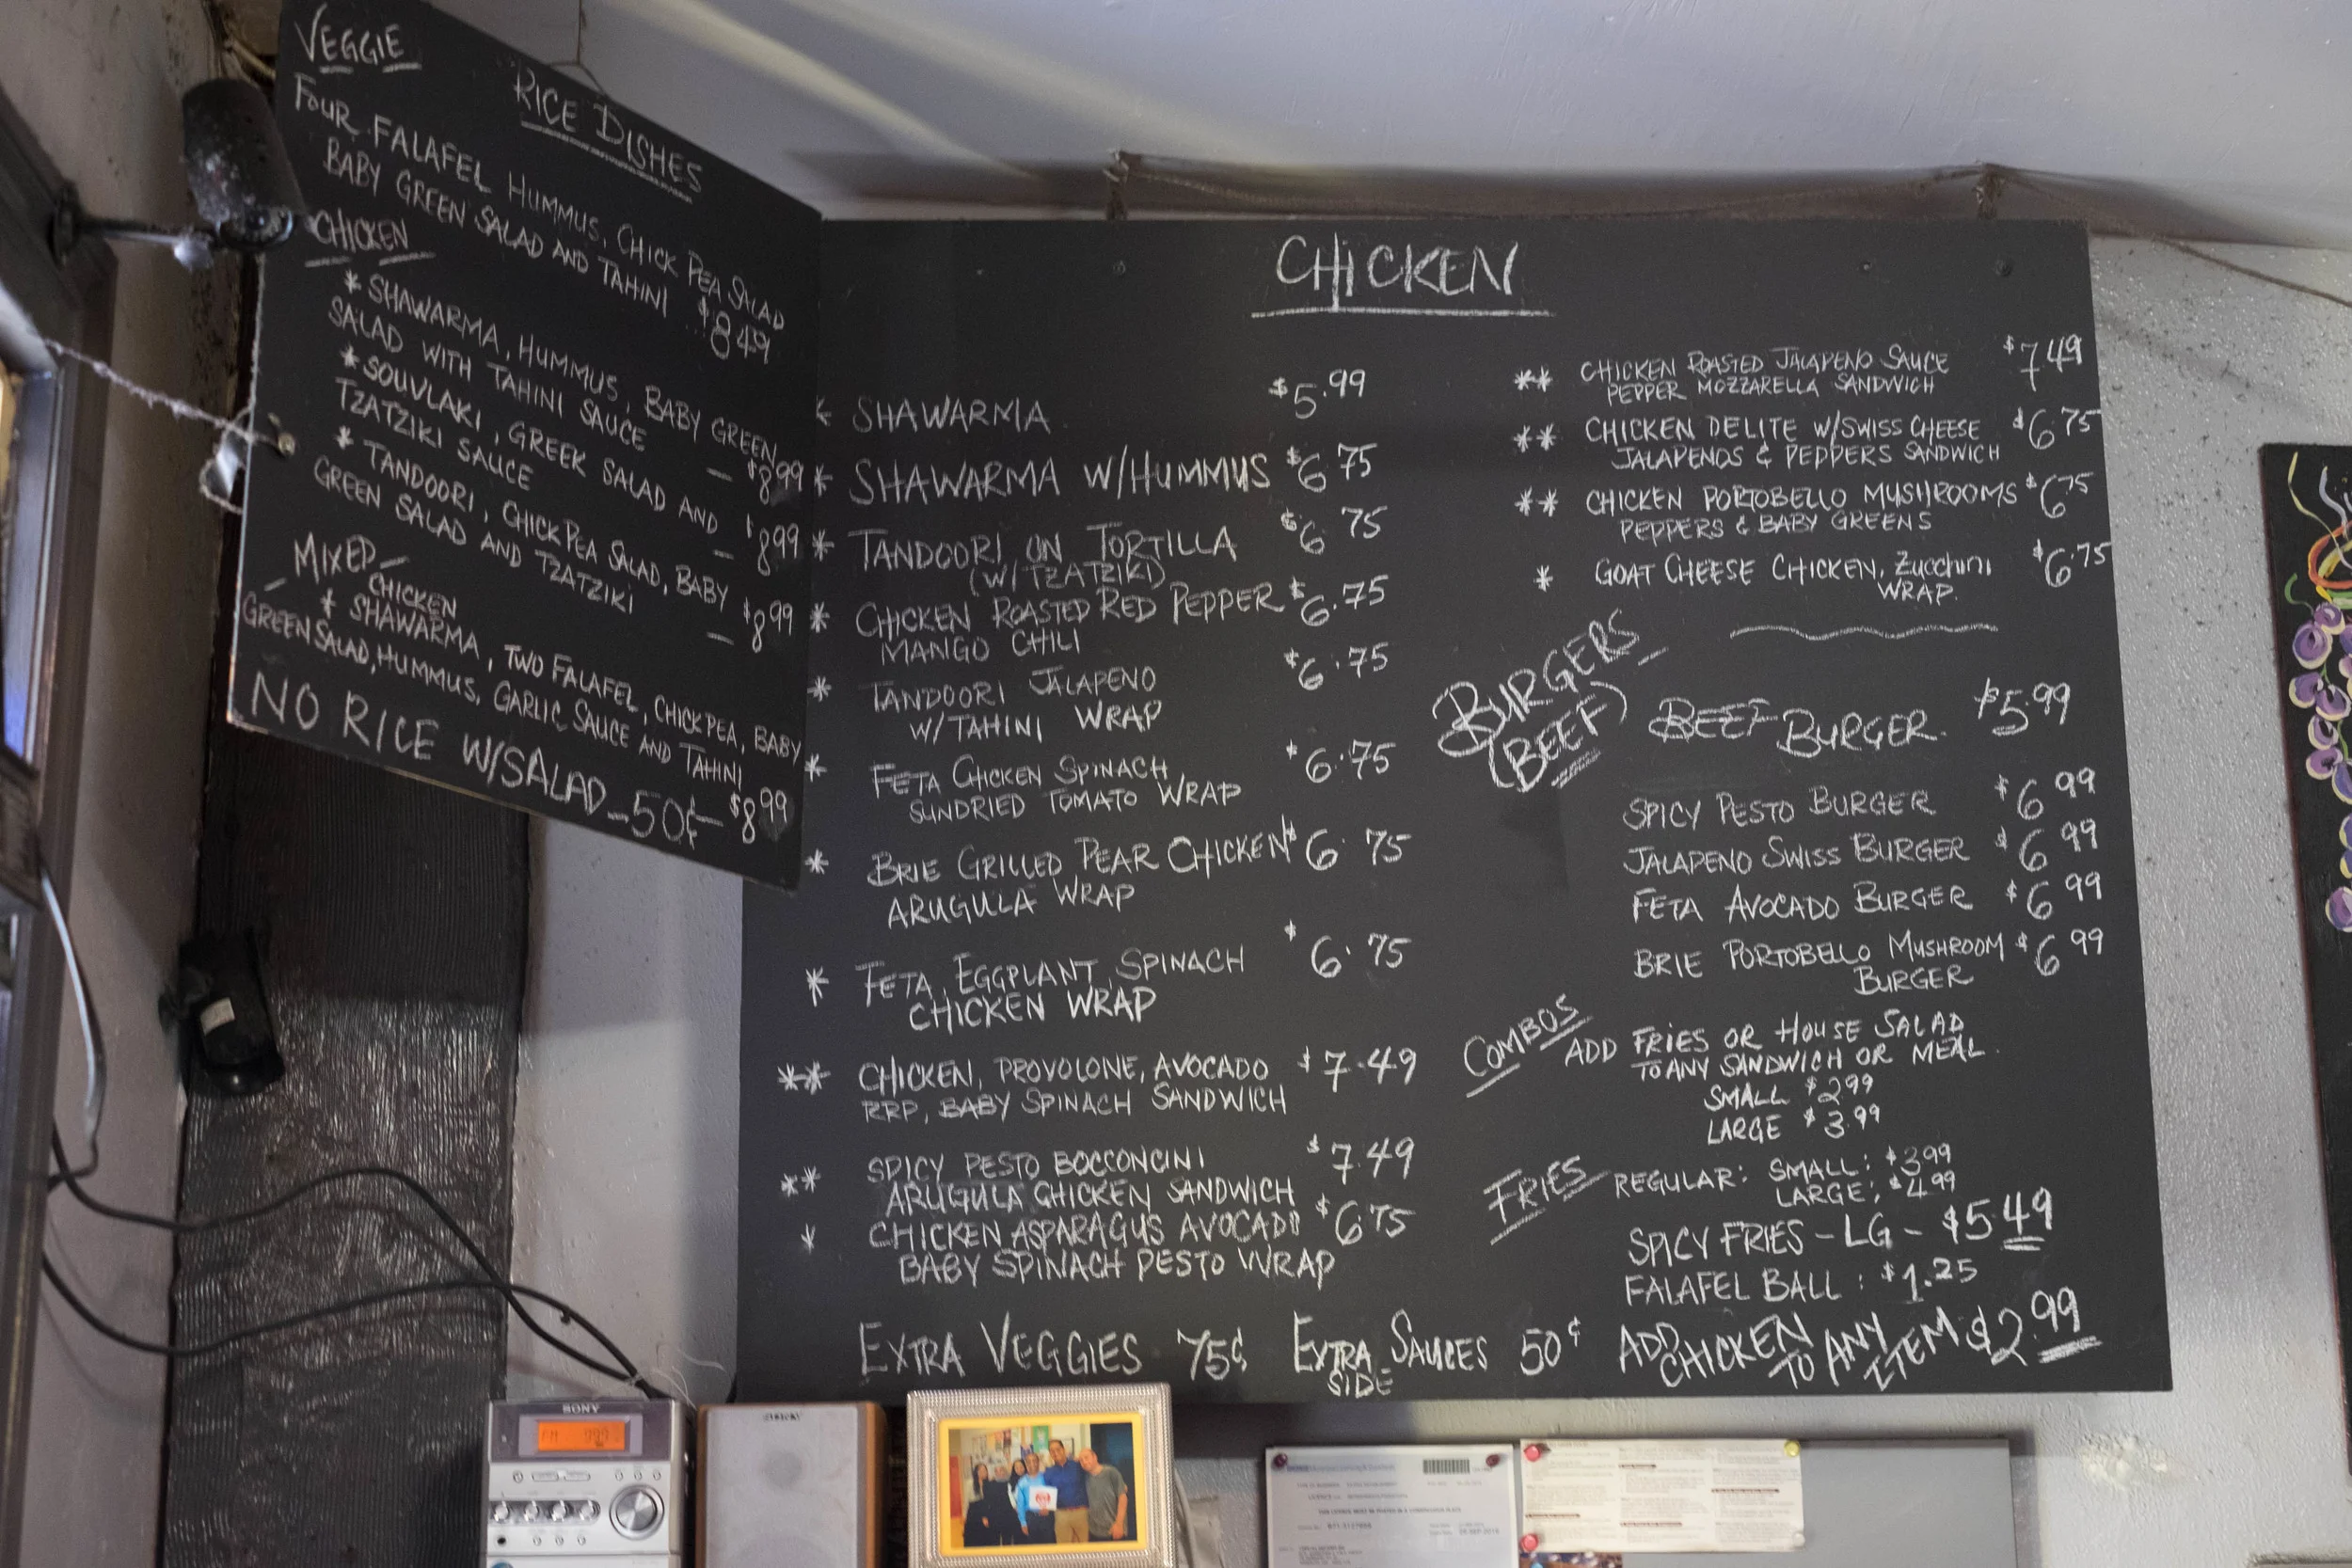 VEGGIE
RICE DISHES
FOUR FALAFEL HUMMUS, CHICK PEA SALAD
BABY GREEN SALAD AND TAHINI ... $8.49
CHICKEN
* SHAWARMA, HUMMUS, BABY GREEN
SALAD WITH TAHINI SAUCE — $8.99
* SOUVLAKI, GREEK SALAD AND
TZATZIKI SAUCE — $8.99
* TANDOORI, CHICK PEA SALAD, BABY
GREEN SALAD AND TZATZIKI — $8.99
MIXED
CHICKEN
* SHAWARMA, TWO FALAFEL, CHICK PEA, BABY
GREEN SALAD, HUMMUS, GARLIC SAUCE AND TAHINI
$8.99
NO RICE W/SALAD - 50¢
CHICKEN
* SHAWARMA $5.99
* SHAWARMA W/HUMMUS $6.75
* TANDOORI ON TORTILLA $6.75
(W/TZATZIKI)
* CHICKEN ROASTED RED PEPPER $6.75
MANGO CHILI
* TANDOORI JALAPENO $6.75
W/TAHINI WRAP
* FETA CHICKEN SPINACH $6.75
SUNDRIED TOMATO WRAP
* BRIE GRILLED PEAR CHICKEN $6.75
ARUGULA WRAP
* FETA, EGGPLANT, SPINACH $6.75
CHICKEN WRAP
** CHICKEN, PROVOLONE, AVOCADO $7.49
RRP, BABY SPINACH SANDWICH
** SPICY PESTO BOCCONCINI $7.49
ARUGULA CHICKEN SANDWICH
* CHICKEN ASPARAGUS AVOCADO $6.75
BABY SPINACH PESTO WRAP
** CHICKEN ROASTED JALAPENO SAUCE $7.49
PEPPER MOZZARELLA SANDWICH
** CHICKEN DELITE W/SWISS CHEESE $6.75
JALAPENOS & PEPPERS SANDWICH
** CHICKEN PORTOBELLO MUSHROOMS $6.75
PEPPERS & BABY GREENS
* GOAT CHEESE CHICKEN, ZUCCHINI $6.75
WRAP.
BURGERS
(BEEF)
BEEF BURGER $5.99
SPICY PESTO BURGER $6.99
JALAPENO SWISS BURGER $6.99
FETA AVOCADO BURGER $6.99
BRIE PORTOBELLO MUSHROOM $6.99
BURGER
COMBOS
ADD FRIES OR HOUSE SALAD
TO ANY SANDWICH OR MEAL.
SMALL $2.99
LARGE $3.99
FRIES
REGULAR: SMALL: $3.99
LARGE: $4.99
SPICY FRIES - LG - $5.49
FALAFEL BALL: $1.25
EXTRA VEGGIES 75¢
EXTRA SAUCES 50¢
SIDE
ADD CHICKEN TO ANY ITEM $2.99
SONY
SONY